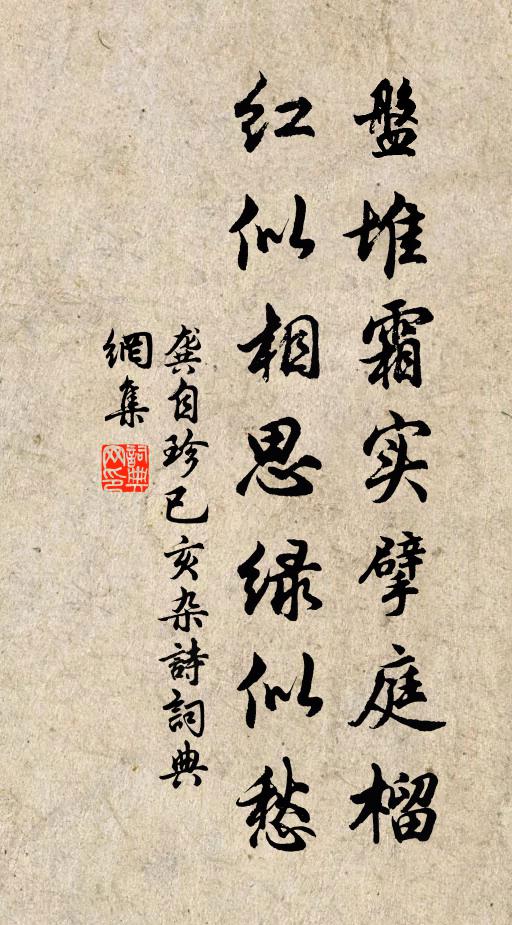 盤堆霜实擘庭榴
红似相思绿似愁
龚自珍己亥杂詩詞典
網集
詞典网印